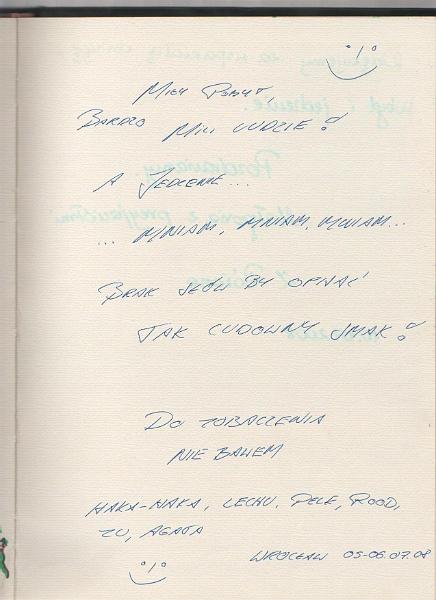 MIŁY POBYT,
BARDZO MILI LUDZIE!
A JEDZENIE...
... MNIAM, MNIAM, MNIAM...
BRAK SŁÓW BY OPISAĆ
TAK CUDOWNY SMAK!
DO ZOBACZENIA
NIEBAWEM
HAKA-NAKA, LECHU, PELE, ROOD,
ZU, AGATA
WROCŁAW 05-06.07.08